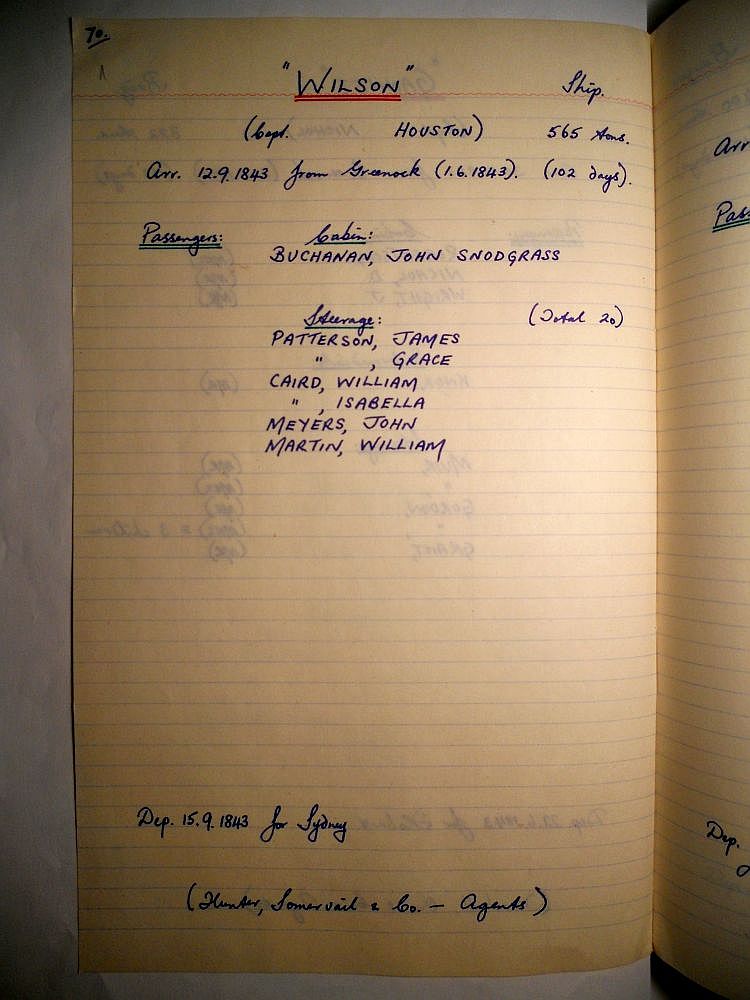 70.
"WILSON" Ship.
(Capt. HOUSTON) 565 tons.
Arr. 12.9.1843 from Greenock (1.6.1843). (102 days).
Passengers: Cabin:
BUCHANAN, JOHN SNODGRASS
Steerage: (Total 20)
PATTERSON, JAMES
" , GRACE
CAIRD, WILLIAM
" , ISABELLA
MEYERS, JOHN
MARTIN, WILLIAM
Dep. 15.9.1843 for Sydney
(Hunter, Somervail & Co. — Agents)
Arr
Pas
Dep.